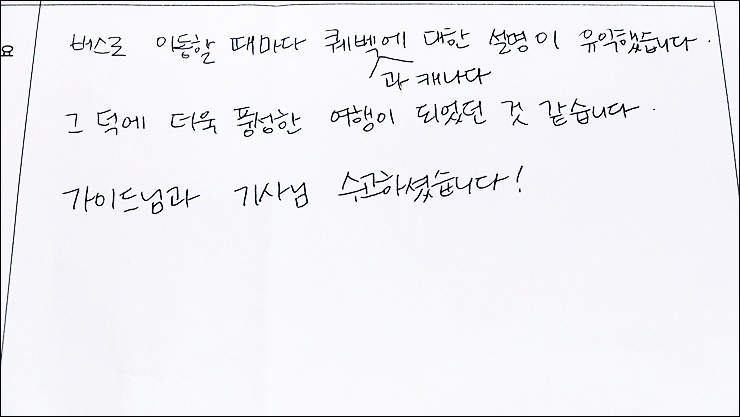 버스로 이동할 때마다 퀘벡에 대한 설명이 유익했습니다.
과 캐나다
그 덕에 더욱 풍성한 여행이 되었던 것 같습니다.
가이드님과 기사님 수고하셨습니다!
요